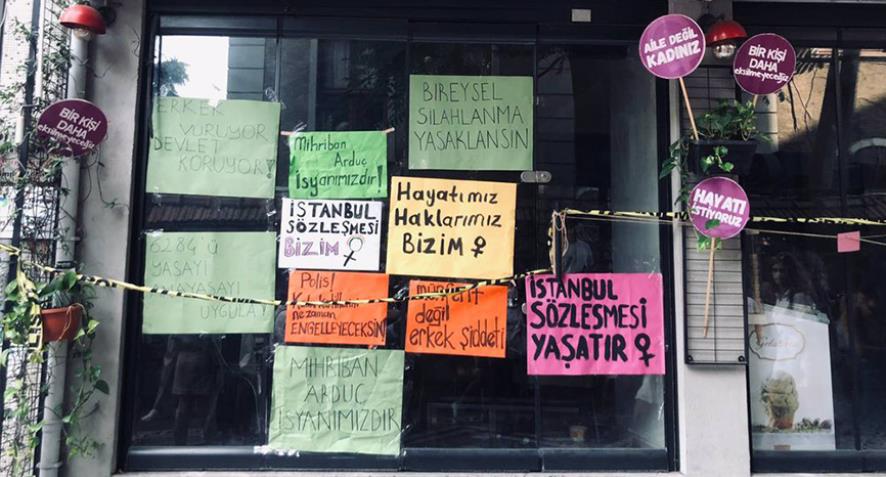 BİR KİŞİ
DAHA
eksilmeyeceğiz
ERKEK
VURUYOR
DEVLET
KORUYOR!
Mihriban
Arduç
İsyanımızdır!
BİREYSEL
SİLAHLANMA
YASAKLANSIN
AİLE DEĞİL
KADINIZ
BİR KİŞİ
DAHA
eksilmeyeceğiz
İSTANBUL
SÖZLEŞMESİ
BİZİM
Hayatımız
Haklarımız
BİZİM
HAYATI
İSTİYORUZ
6284'ü
YASAYI
UYGULA!
Polis!
ne zaman
ENGELLEYECEKSİN
değil
erkek şiddeti
İSTANBUL
SÖZLEŞMESİ
YAŞATIR
MİHRİBAN
ARDUÇ
İSYANIMIZDIR